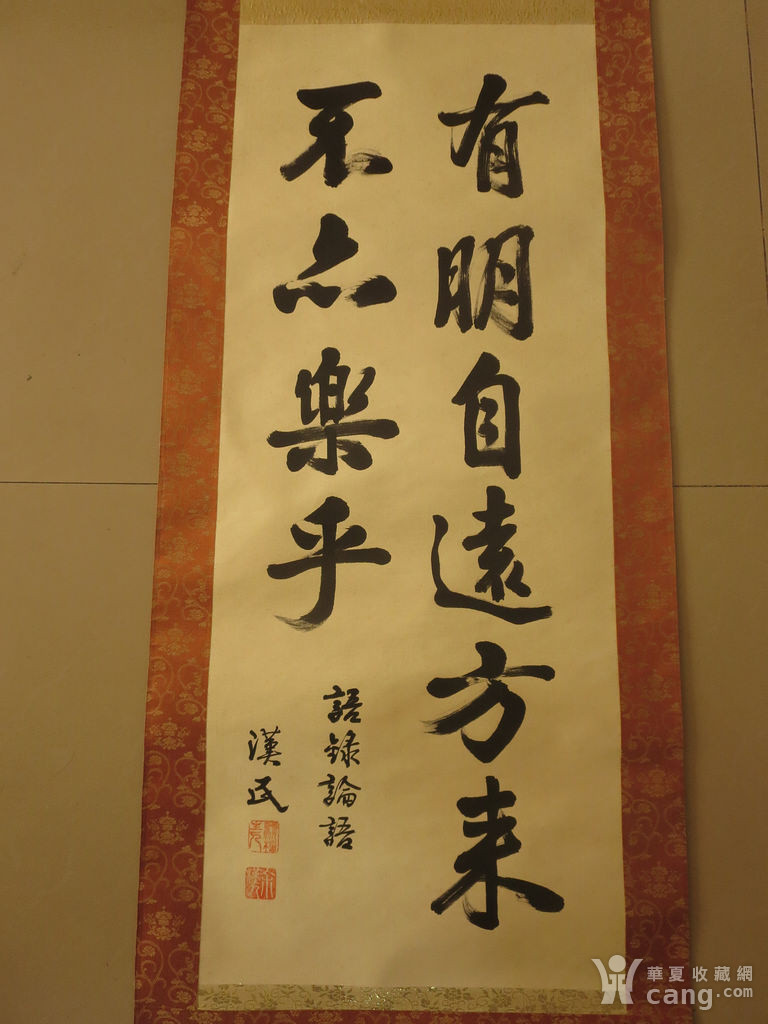 有朋自遠方来
不亦楽乎
語録論語
漢民
華夏收藏網
cang.com